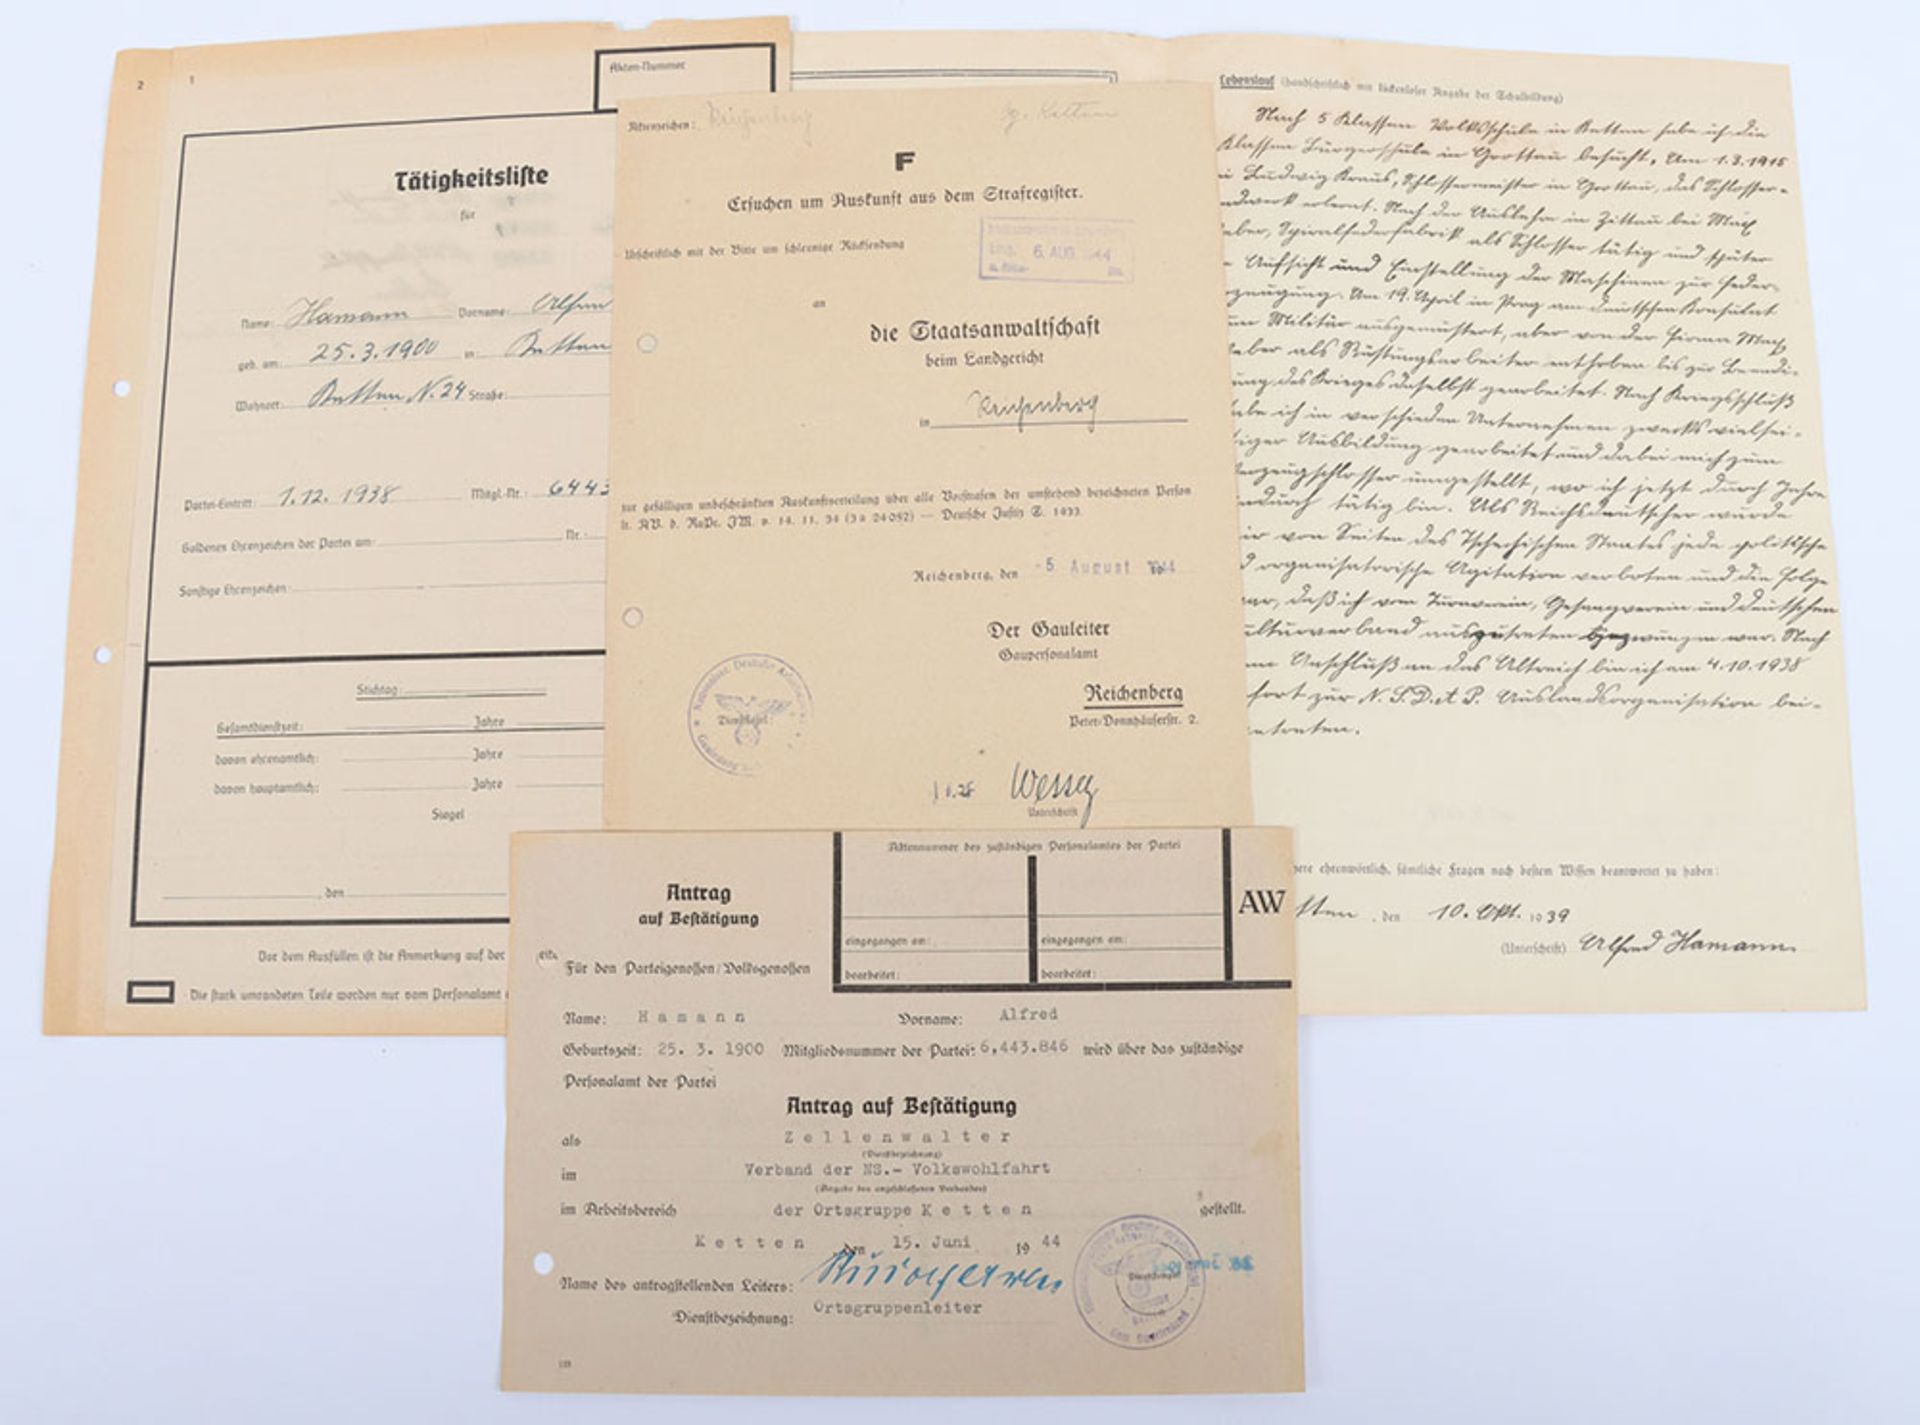 2 1
Akten-Nummer
Tätigkeitsliste
für
Name: Hamann Vorname: Alfred
geb. am: 25.3.1900 in: Ketten
Wohnort: Ketten N. 24 Straße:
Partei-Eintritt: 1.12.1938 Mitgl.-Nr.: 6443
Goldenes Ehrenzeichen der Partei am: Nr.:
Sonstige Ehrenzeichen:
Stichtag:
Gesamtdienstzeit: Jahre
davon ehrenamtlich: Jahre
davon hauptamtlich: Jahre
Siegel
, den
Vor dem Ausfüllen ist die Anmerkung auf der
Die stark umrandeten Teile werden nur vom Personalamt
Aktenzeichen: Reichenberg Og. Ketten
F
Ersuchen um Auskunft aus dem Strafregister.
Urschriftlich mit der Bitte um schleunige Rücksendung
6. AUG. 1944
an
die Staatsanwaltschaft
beim Landgericht
in Reichenberg
zur gefälligen unbeschränkten Auskunftserteilung über alle Vorstrafen der umstehend bezeichneten Person
lt. AV. d. RuPr. JM. v. 14. 11. 34 (3a 24052) — Deutsche Justiz S. 1433.
Reichenberg, den -5. August 1944
Der Gauleiter
Gaupersonalamt
Reichenberg
Peter-Donnhäuserstr. 2.
Dienstsiegel
Unterschrift
Lebenslauf (handschriftlich mit lückenloser Angabe der Schulbildung)
Nach 5 Klassen Volksschule in Ketten habe ich die
Klassen Bürgerschule in Grottau besucht. Am 1.3.1915
Ludwig Kraus, Schlossermeister in Grottau, das Schlosser-
handwerk erlernt. Nach der Auslehre in Zittau bei Max
Spiralfederfabrik als Schlosser tätig und später
Aufsicht und Einstellung der Maschinen zur Feder-
zeugung. Am 19. April in Prag am deutschen Konsulat
zum Militär ausgemustert, aber von der Firma Max
als Rüstungsarbeiter enthoben bis zur Beendi-
gung des Krieges daselbst gearbeitet. Nach Kriegsschluß
habe ich in verschieden Unternehmen zwecks vielsei-
tiger Ausbildung gearbeitet und dabei mich zum
Werkzeugschlosser umgestellt, wo ich jetzt durch Jahre
hindurch tätig bin. Als Reichsdeutscher wurde
mir von Seiten des Tschechischen Staates jede politische
und organisatorische Agitation verboten und die Folge
war, daß ich vom Turnverein, Gesangverein und deutschen
Kulturverband auszutreten gezwungen war. Nach
dem Anschluß an das Altreich bin ich am 4.10.1938
sofort zur N.S.D.A.P. Auslandsorganisation bei-
getreten.
ehrenwörtlich, sämtliche Fragen nach bestem Wissen beantwortet zu haben:
tten, den 10. Okt. 1939
(Unterschrift) Alfred Hamann
Antrag
auf Bestätigung
Für den Parteigenossen/Volksgenossen
Aktennummer des zuständigen Personalamtes der Partei
AW
eingegangen am: eingegangen am:
bearbeitet: bearbeitet:
Name: Hamann Vorname: Alfred
Geburtszeit: 25. 3. 1900 Mitgliedsnummer der Partei: 6,443.846 wird über das zuständige
Personalamt der Partei
Antrag auf Bestätigung
als Zellenwalter
(Dienstbezeichnung)
im Verband der NS.- Volkswohlfahrt
(Angabe des angeschlossenen Verbandes)
im Arbeitsbereich der Ortsgruppe Ketten gestellt.
Ketten den 15. Juni 1944
Name des antragstellenden Leiters:
Dienstbezeichnung: Ortsgruppenleiter